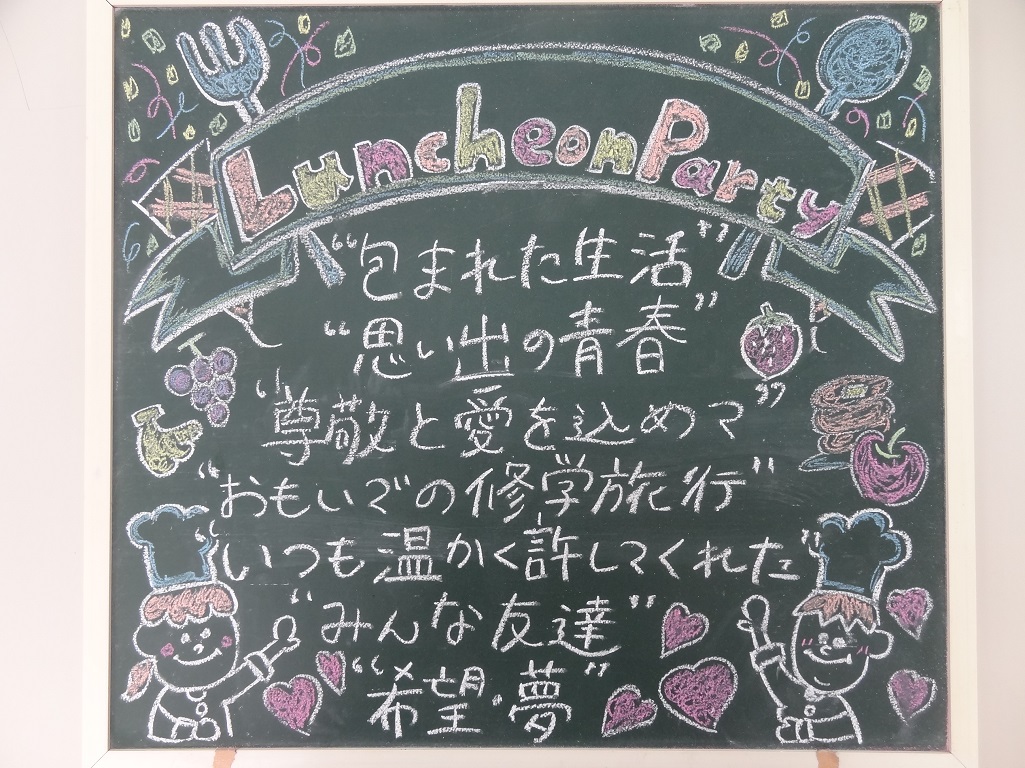 Luncheon Party
“包まれた生活”
“思い出の青春”
“尊敬と愛を込めて”
“おもいでの修学旅行”
“いつも温かく許してくれた”
“みんな友達”
“希望・夢”